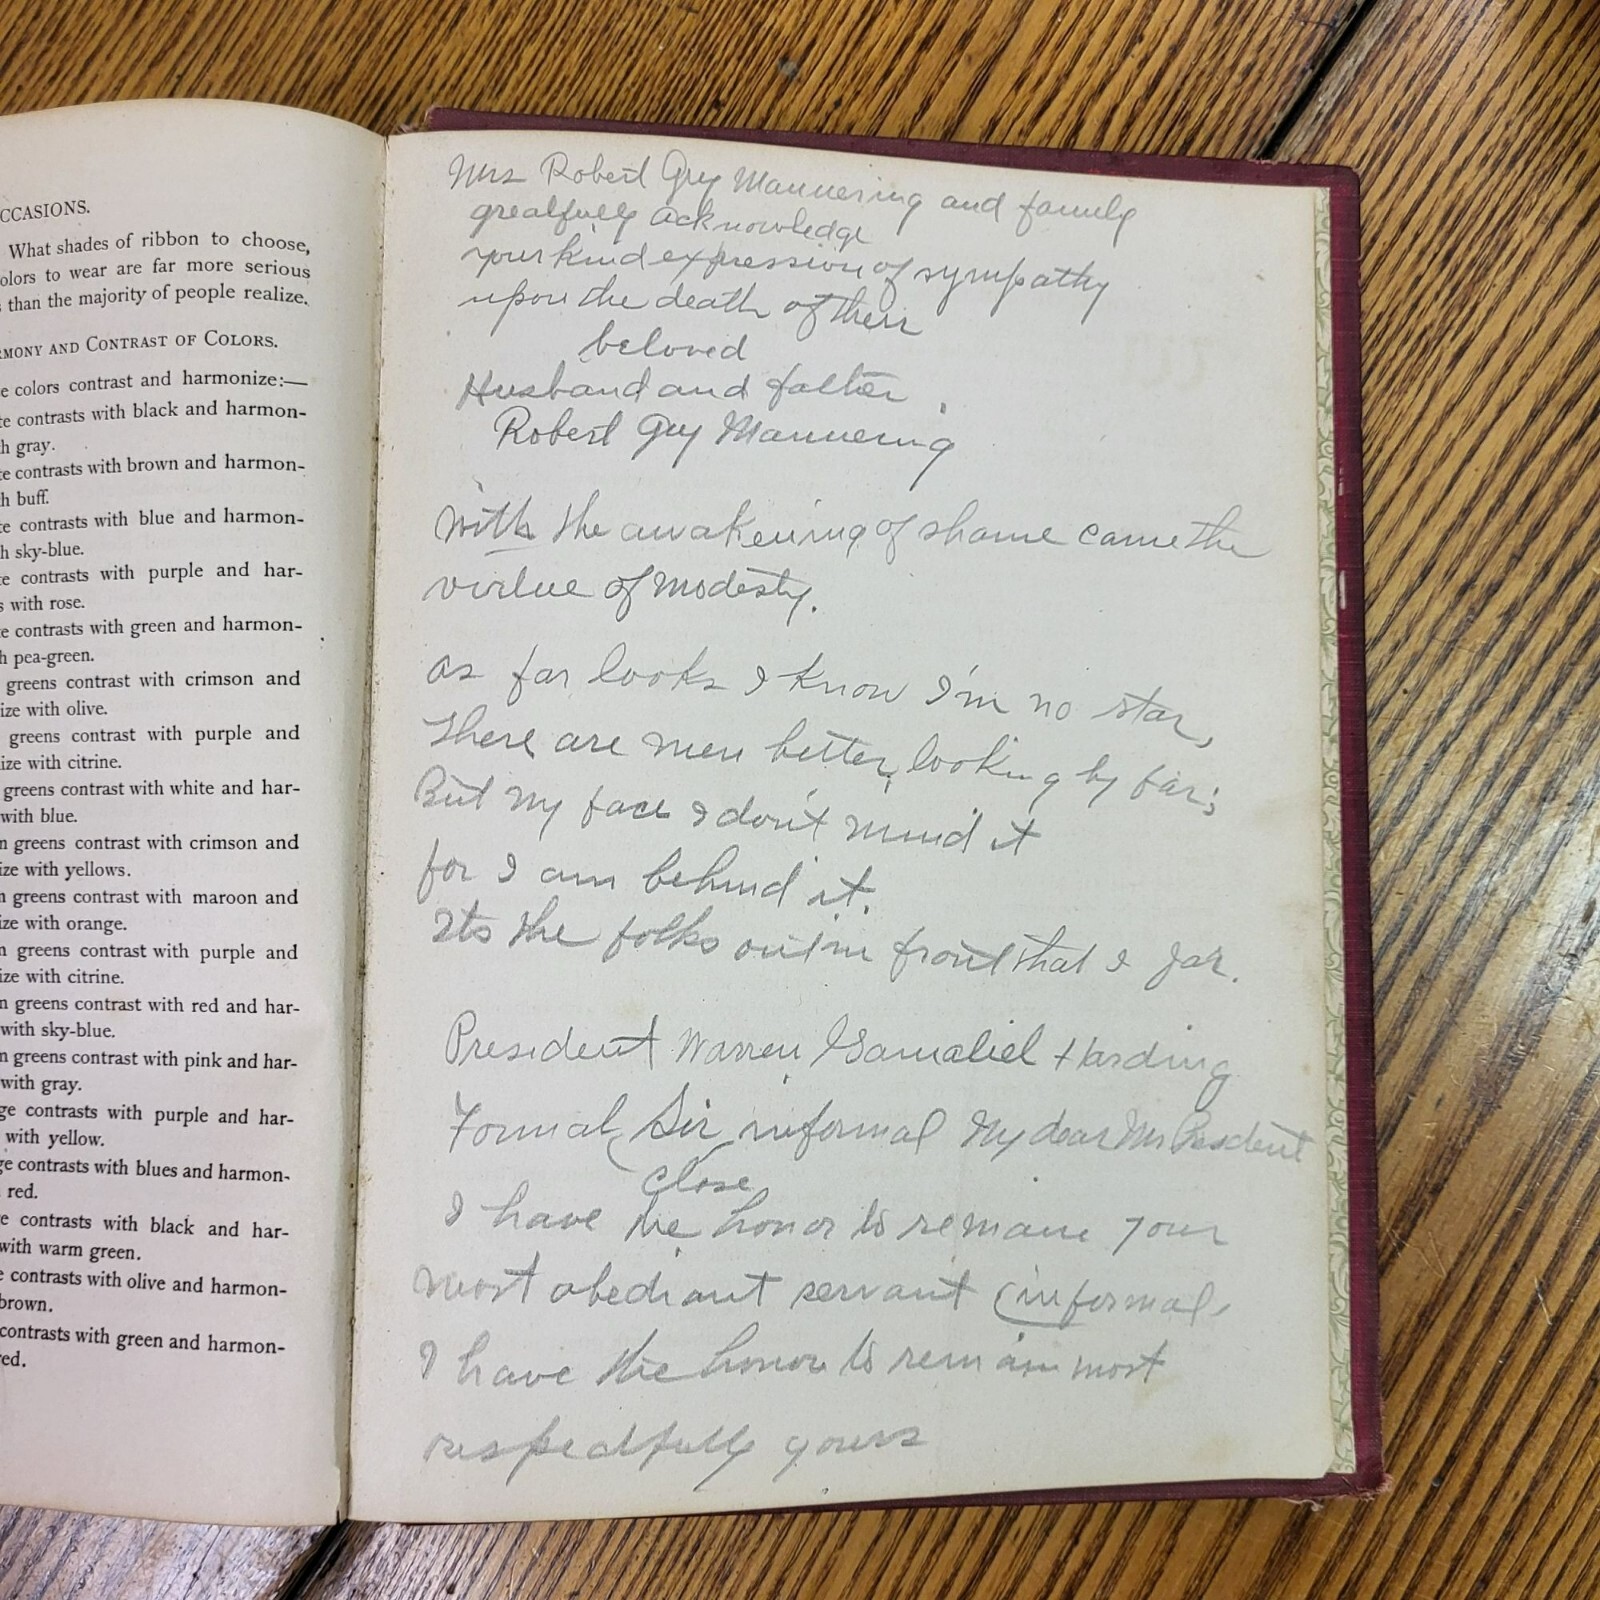 CCASIONS.
What shades of ribbon to choose,
olors to wear are far more serious
s than the majority of people realize.
RMONY AND CONTRAST OF COLORS.
e colors contrast and harmonize:—
te contrasts with black and harmon-
h gray.
te contrasts with brown and harmon-
h buff.
te contrasts with blue and harmon-
h sky-blue.
te contrasts with purple and har-
s with rose.
te contrasts with green and harmon-
h pea-green.
greens contrast with crimson and
ize with olive.
greens contrast with purple and
ize with citrine.
greens contrast with white and har-
with blue.
n greens contrast with crimson and
ize with yellows.
n greens contrast with maroon and
ize with orange.
n greens contrast with purple and
ize with citrine.
n greens contrast with red and har-
with sky-blue.
n greens contrast with pink and har-
with gray.
ge contrasts with purple and har-
with yellow.
ge contrasts with blues and harmon-
red.
e contrasts with black and har-
with warm green.
e contrasts with olive and harmon-
brown.
contrasts with green and harmon-
red.
Mrs Robert Guy Mannering and family
greatfully acknowledge
your kind expression of sympathy
upon the death of their
beloved
Husband and father
Robert Guy Mannering
With the awakening of shame came the
virtue of modesty.
As far looks I know I'm no star,
There are men better looking by far;
But my face I don't mind it
for I am behind it.
Its the folks out in front that I jar.
President Warren Gamaliel Harding
Formal, Sir informal My dear Mr President
close
I have the honor to remain your
most obediant servant (informal,
I have the honor to remain most
respectfully yours